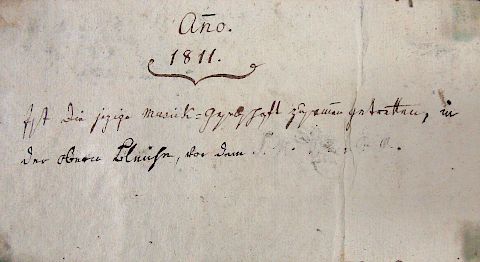 Año.
1811.
Ist die jezige Musick=Gesellschaft zusamen getretten, in
der obern Bleiche, vor dem